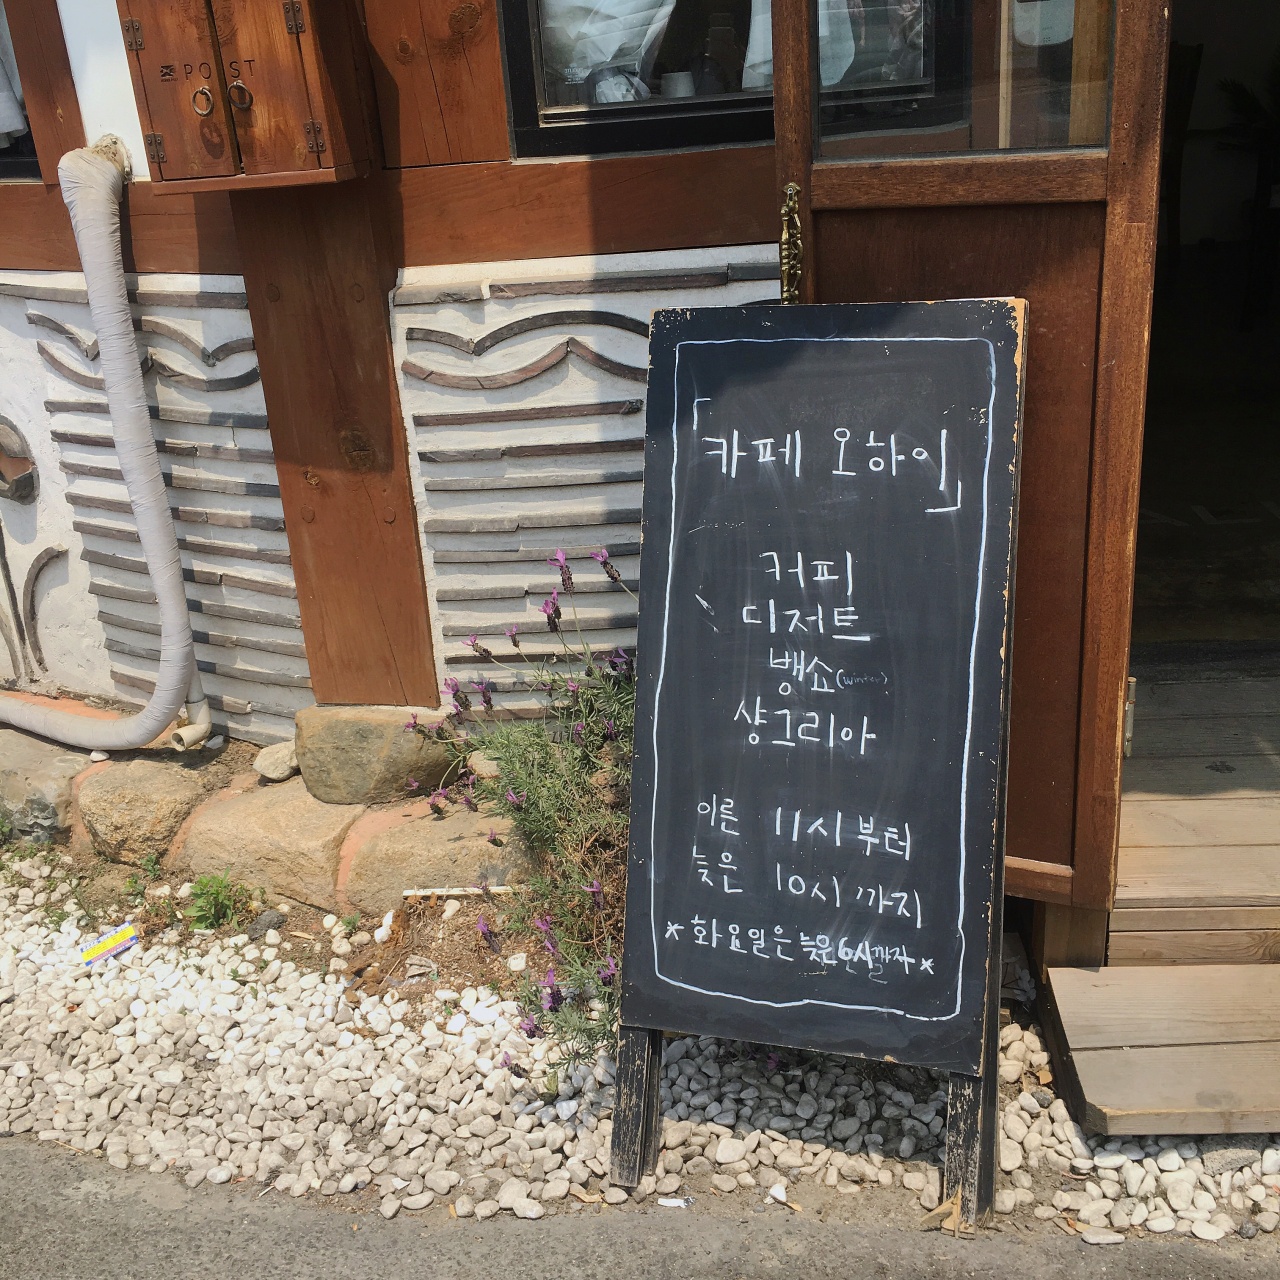 POST
「카페 오하이」
커피
디저트
뱅쇼(winter)
샹그리아
이른 11시부터
늦은 10시까지
*화요일은 늦은 6시까지*